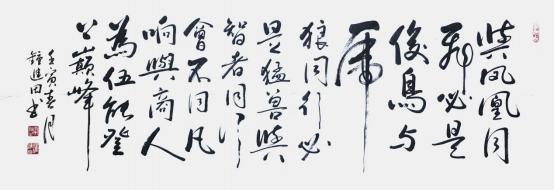 與鳳凰同
飛必是
俊鳥与
虎
狼同行必
是猛兽與
智者同行
會不同凡
响與高人
為伍能登
上巔峰
壬寅春月
鍾進田书